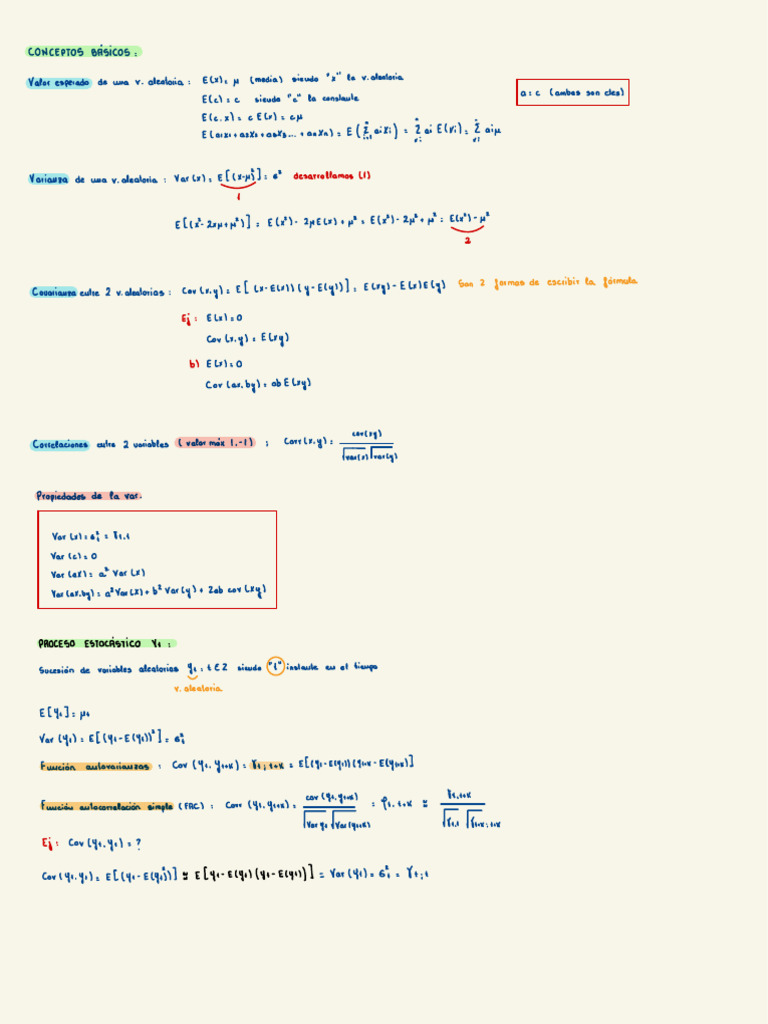 CONCEPTOS BÁSICOS:
Valor esperado de una v. aleatoria: E(x)= μ (media) siendo "x" la v. aleatoria
a = c (ambas son ctes)
E(c)= c siendo "c" la constante
E(c.x)= c E(x)= cμ
E(a₁x₁+a₂x₂+a₃x₃...+aₙxₙ)= E(∑ⁿᵢ₌₁ aᵢxᵢ) = ∑ⁿ aᵢ E(xᵢ)= ∑ⁿ aᵢμ
Varianza de una v. aleatoria: Var(x)= E[(x-μ)²]= σ² desarrollamos (1)
1
E[(x²-2xμ+μ²)] = E(x²)- 2μE(x)+μ² = E(x²)-2μ²+μ² = E(x²)-μ²
2
Covarianza entre 2 v. aleatorias: Cov(x,y)= E[(x-E(x))(y-E(y))]= E(xy)-E(x)E(y) Son 2 formas de escribir la fórmula
Ej: E(x)=0
Cov(x,y)= E(xy)
b) E(x)=0
Cov(ax,by)= ab E(xy)
Correlaciones entre 2 variables (valor máx 1,-1) : Corr(x,y)= cov(xy) / √var(x) √var(y)
Propiedades de la var.
Var(x)= σ²ₜ = γₜ,ₜ
Var(c)=0
Var(ax)= a² Var(x)
Var(ax,by)= a² Var(x)+ b² Var(y) + 2ab cov(xy)
PROCESO ESTOCÁSTICO Yₜ:
Sucesión de variables aleatorias yₜ : t ∈ Z siendo "t" instante en el tiempo
v. aleatoria
E[yₜ]= μₜ
Var(yₜ)= E[(yₜ-E(yₜ))²]= σ²ₜ
Función autovarianzas : Cov(yₜ, yₜ₊ₖ)= γₜ;ₜ₊ₖ = E[(yₜ-E(yₜ))(yₜ₊ₖ-E(yₜ₊ₖ)]
Función autocorrelación simple (FAC): Corr(yₜ,yₜ₊ₖ)= cov(yₜ,yₜ₊ₖ) / √Var yₜ √Var(yₜ₊ₖ) = ρₜ,ₜ₊ₖ ≅ γₜ,ₜ₊ₖ / √γₜ,ₜ √γₜ₊ₖ;ₜ₊ₖ
Ej: Cov(yₜ,yₜ)= ?
Cov(yₜ,yₜ)= E[(yₜ-E(yₜ)²)] ≅ E[yₜ-E(yₜ)(yₜ-E(yₜ))] = Var(yₜ)= σ²ₜ = γₜ;ₜ